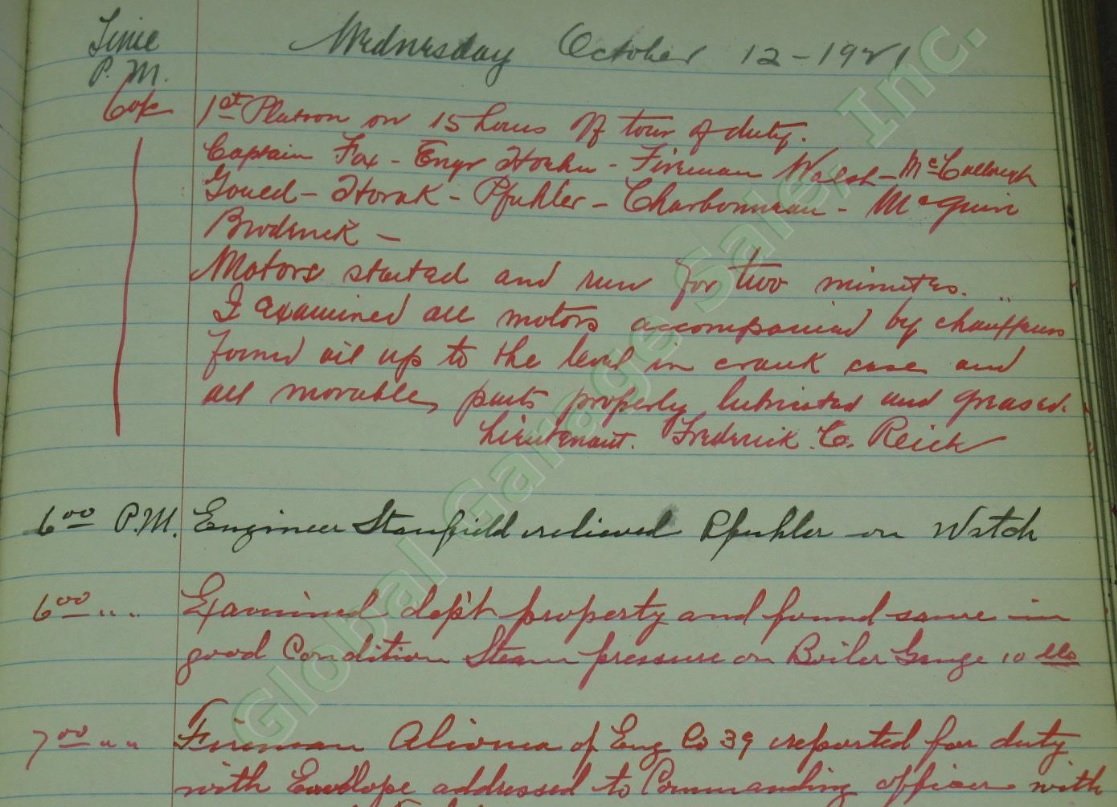 Time
P.M.
Wednesday October 12-1921
6 o'c 1st Platoon on 15 hours of tour of duty.
Captain Fox - Engr Hoehn - Fireman Walsh - McCullough
Goued - Horak - Pfuhler - Charbonneau - McGuin
Broderick -
Motors started and run for two minutes.
I examined all motors accompanied by chauffeurs
found oil up to the level in crank case and
all movable, parts properly lubricated and greased.
Lieutenant. Frederick. C. Reick
6 00 P.M. Engineer Stanfield relieved Pfuhler on Watch
6 00 " " Examined dep't property and found same in
good Condition Steam pressure on Boiler Gauge 10 lbs
7 00 " " Fireman of Eng Co 39 reported for duty
with Envelope addressed to Commanding officer with
Global Garage Sale, Inc.